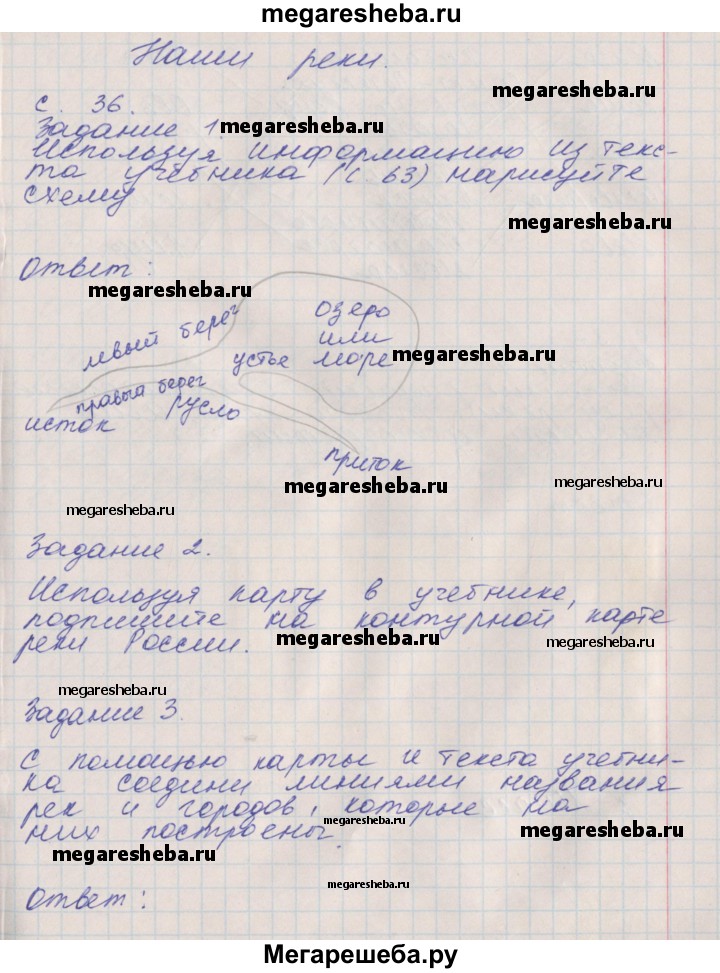 megaresheba.ru
Наши реки.
megaresheba.ru
с. 36.
Задание 1.
megaresheba.ru
Используя информацию из текс-
та учебника (с. 63) нарисуйте
схему
megaresheba.ru
Ответ:
megaresheba.ru
левый берег
озеро
или
устье море
megaresheba.ru
правый берег
исток русло
приток
megaresheba.ru
megaresheba.ru
megaresheba.ru
Задание 2.
Используя карту в учебнике,
подпишите на контурной карте
реки России.
megaresheba.ru
megaresheba.ru
megaresheba.ru
Задание 3.
С помощью карты и текста учебни-
ка соедини линиями названия
рек и городов, которые на
них построены.
megaresheba.ru
megaresheba.ru
megaresheba.ru
Ответ:
megaresheba.ru
Мегарешеба.ру